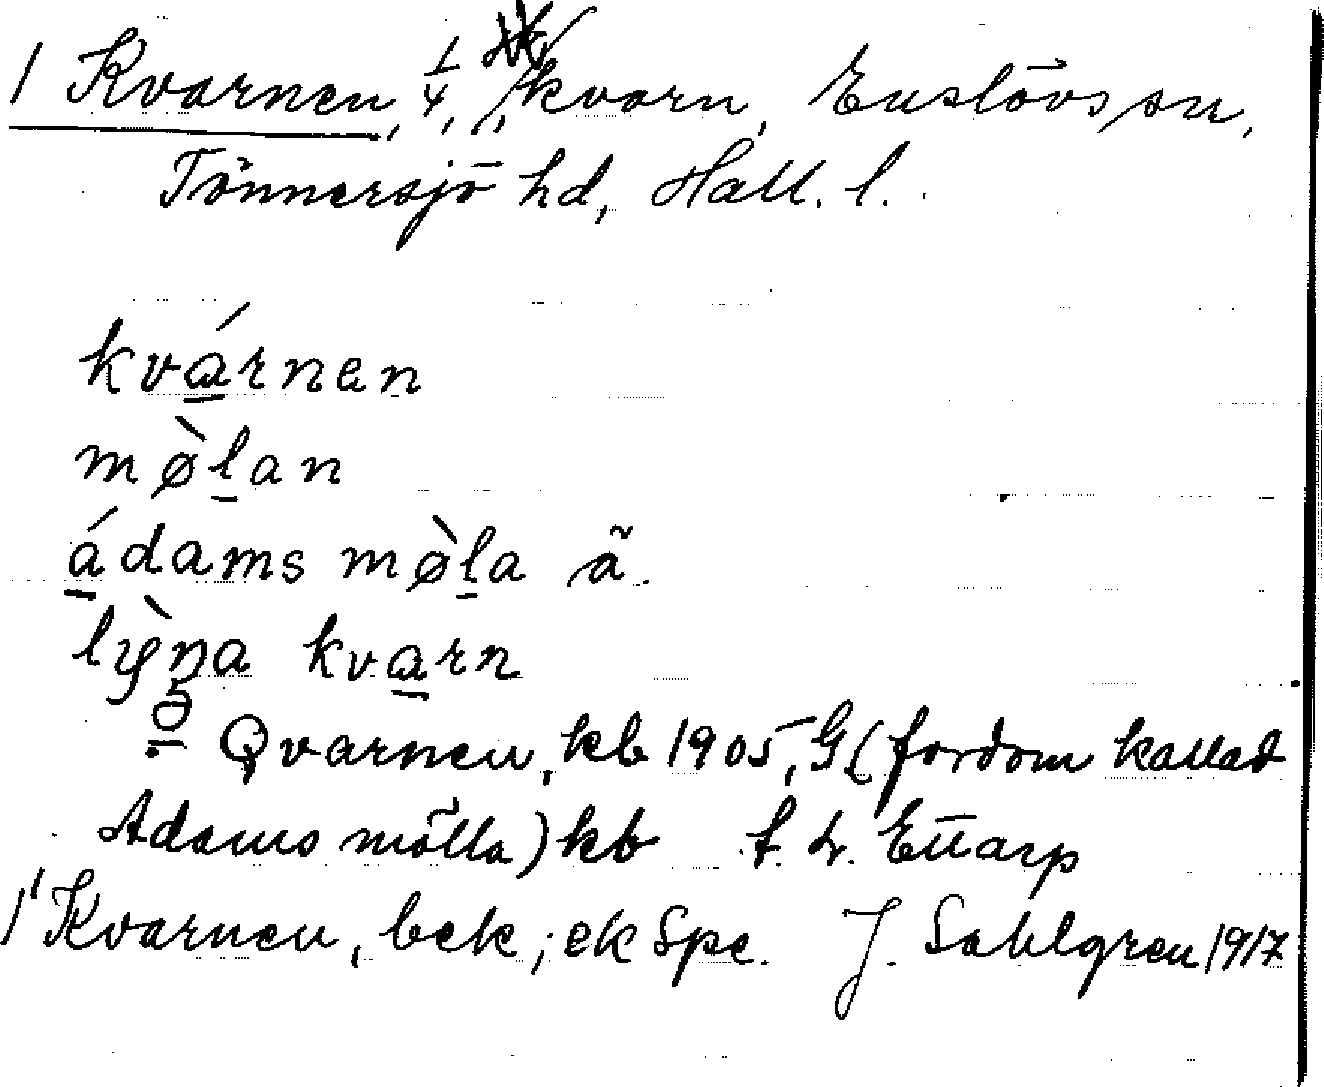 1 Kvarnen, 1/4, kvarn, Enslövs sn,
Tönnersjö hd, Hall. l.
kvárnen
mø̀lan
ádams mø̀la ã.
lỳŋa kvarn
Qvarnen, kb 1905, G (fordom kallad
Adams mölla) kb f. d. Ettarp
1 Kvarnen, bek; ek Spe. J. Sahlgren 1917